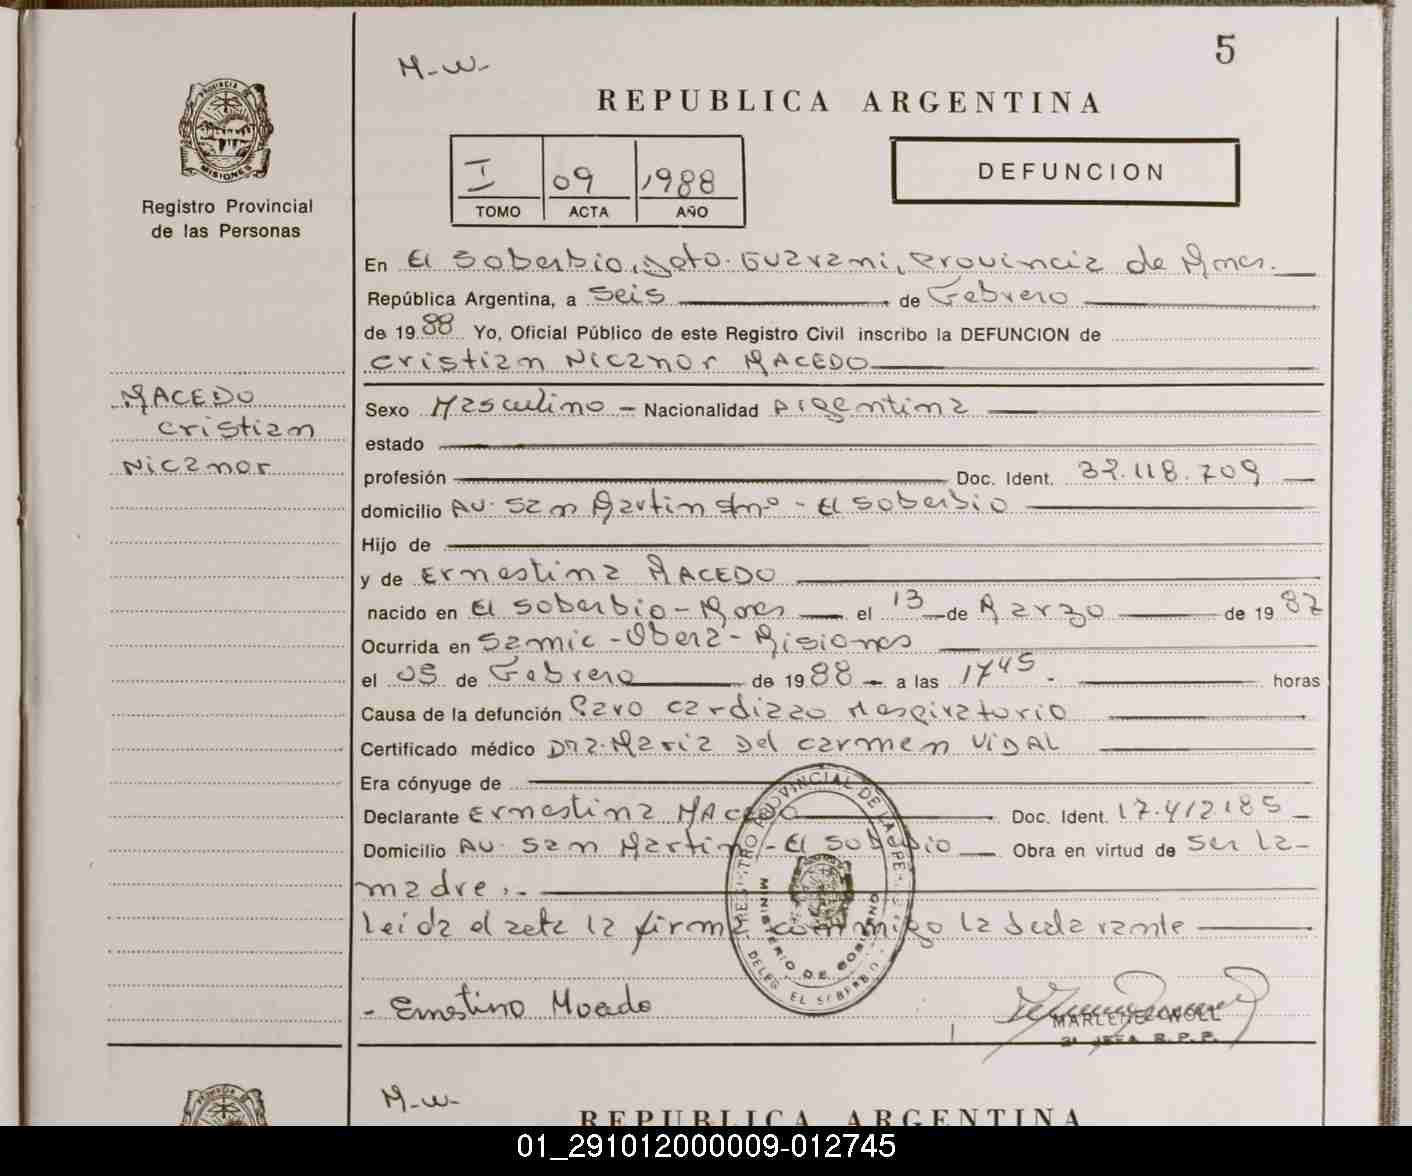 5
M-W-
REPUBLICA ARGENTINA
PROVINCIA DE
MISIONES
I 09 1988
TOMO ACTA AÑO
DEFUNCION
Registro Provincial
de las Personas
En El Soberbio, Dpto. Guarani, Provincia de Mnes.
República Argentina, a Seis de Febrero
de 1988 Yo, Oficial Público de este Registro Civil inscribo la DEFUNCION de
Cristian Nicanor MACEDO
MACEDO
Cristian
Nicanor
Sexo Masculino - Nacionalidad Argentina
estado
profesión Doc. Ident.
domicilio AV. San Martin S/nº - El Soberbio
Hijo de
y de Ernestina MACEDO
nacido en El Soberbio - Mnes el 13 de Marzo de 1987
Ocurrida en Samic - Obera - Misiones
el 05 de Febrero de 1988 - a las 1745 - horas
Causa de la defunción Paro cardiaco Respiratorio
Certificado médico Dra. Maria Del Carmen VIDAL
Era cónyuge de
Declarante Ernestina MACEDO Doc. Ident. 17.412185
Domicilio AV. San Martin - El Soberbio Obra en virtud de Ser la-
madre.-
Leida el acta la firma conmigo la declarante
REGISTRO PROVINCIAL DE LAS PERSONAS
MINISTERIO DE GOBIERNO
DELEG. EL SOBERBIO
- Ernestino Macedo
MARLENE
2ª JEFA R.P.P.
M-W-
REPUBLICA ARGENTINA
01_291012000009-012745